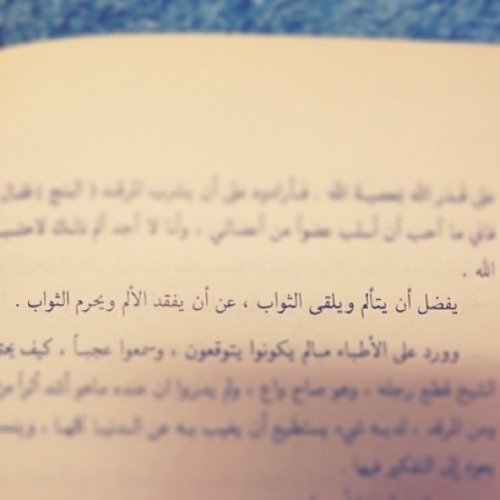 على قدر الله بمعصية الله . فأرادوه على أن يشرب المرقد ( البنج ) فقال
فاني ما أحب أن أسلب عضواً من أعضائي ، وأنا لا أجد ألم ذلك
الله .
يفضل أن يتألم ويلقى الثواب ، عن أن يفقد الألم ويحرم الثواب .
وورد على الأطباء مالم يكونوا يتوقعون ، وسمعوا عجباً ، كيف
الشيخ قطع رجله ، وهو صاح واع ، ولم يدروا ان عنده ماهو أشد أثراً من
ومن المرقد ، لديه شيء يستطيع أن يغيب به عن الدنيا كلها ،
يعود إلى التفكير فيها .